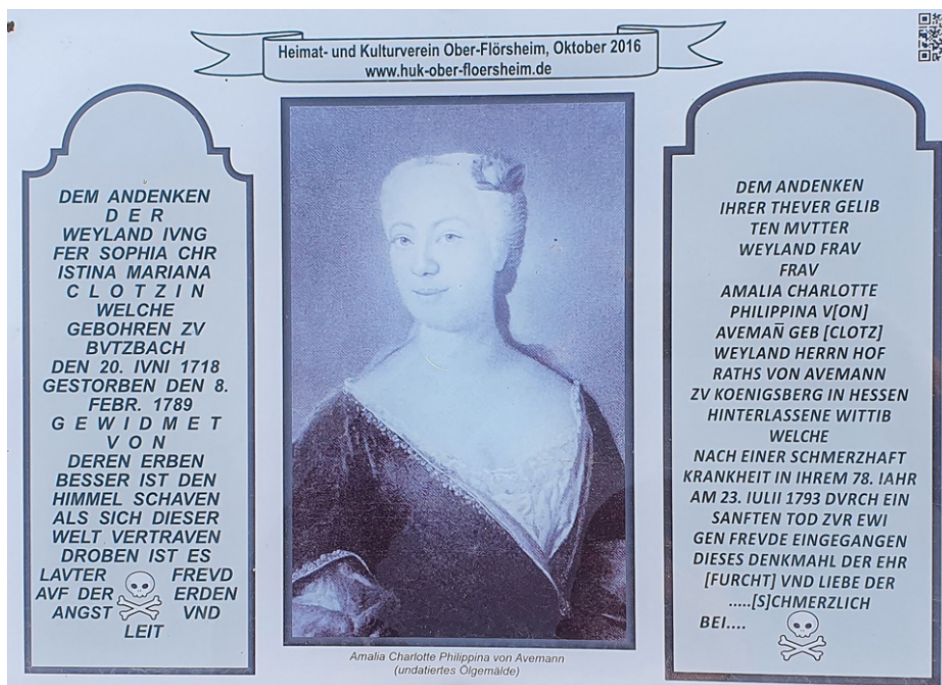 Heimat- und Kulturverein Ober-Flörsheim, Oktober 2016
www.huk-ober-floersheim.de
DEM ANDENKEN
D E R
WEYLAND IVNG
FER SOPHIA CHR
ISTINA MARIANA
C L O T Z I N
WELCHE
GEBOHREN ZV
BVTZBACH
DEN 20. IVNI 1718
GESTORBEN DEN 8.
FEBR. 1789
G E W I D M E T
V O N
DEREN ERBEN
BESSER IST DEN
HIMMEL SCHAVEN
ALS SICH DIESER
WELT VERTRAVEN
DROBEN IST ES
LAVTER FREVD
AVF DER ERDEN
ANGST VND
LEIT
Amalia Charlotte Philippina von Avemann
(undatiertes Ölgemälde)
DEM ANDENKEN
IHRER THEVER GELIB
TEN MVTTER
WEYLAND FRAV
FRAV
AMALIA CHARLOTTE
PHILIPPINA V[ON]
AVEMAÑ GEB [CLOTZ]
WEYLAND HERRN HOF
RATHS VON AVEMANN
ZV KOENIGSBERG IN HESSEN
HINTERLASSENE WITTIB
WELCHE
NACH EINER SCHMERZHAFT
KRANKHEIT IN IHREM 78. IAHR
AM 23. IULII 1793 DVRCH EIN
SANFTEN TOD ZVR EWI
GEN FREVDE EINGEGANGEN
DIESES DENKMAHL DER EHR
[FURCHT] VND LIEBE DER
.....[S]CHMERZLICH
BEI....